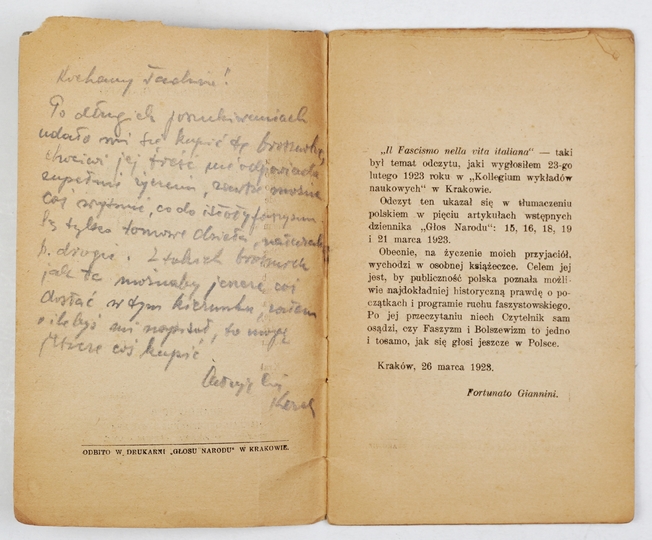 Kochany Tadziu!
Po długich poszukiwaniach
udało mi się kupić tę broszurkę,
chociaż jej treść nie odpowiada
zupełnie życzeniu,
coś wyjaśnić, co do istoty faszyzmu
Są tylko tomowe dzieła,
b. drogie. Z takich broszurek
jak ta możnaby jeszcze coś
dostać w tym kierunku, zatem
o ile byś mi napisał, to mogę
jeszcze coś kupić.
Całuję Cię
Karol
ODBITO W DRUKARNI „GŁOSU NARODU" W KRAKOWIE.
„Il Fascismo nella vita italiana" — taki
był temat odczytu, jaki wygłosiłem 23-go
lutego 1923 roku w „Kollegium wykładów
naukowych" w Krakowie.
Odczyt ten ukazał się w tłumaczeniu
polskiem w pięciu artykułach wstępnych
dziennika „Głos Narodu": 15, 16, 18, 19
i 21 marca 1923.
Obecnie, na życzenie moich przyjaciół,
wychodzi w osobnej książeczce. Celem jej
jest, by publiczność polska poznała możli-
wie najdokładniej historyczną prawdę o po-
czątkach i programie ruchu faszystowskiego.
Po jej przeczytaniu niech Czytelnik sam
osądzi, czy Faszyzm i Bolszewizm to jedno
i tosamo, jak się głosi jeszcze w Polsce.
Kraków, 26 marca 1923.
Fortunato Giannini.